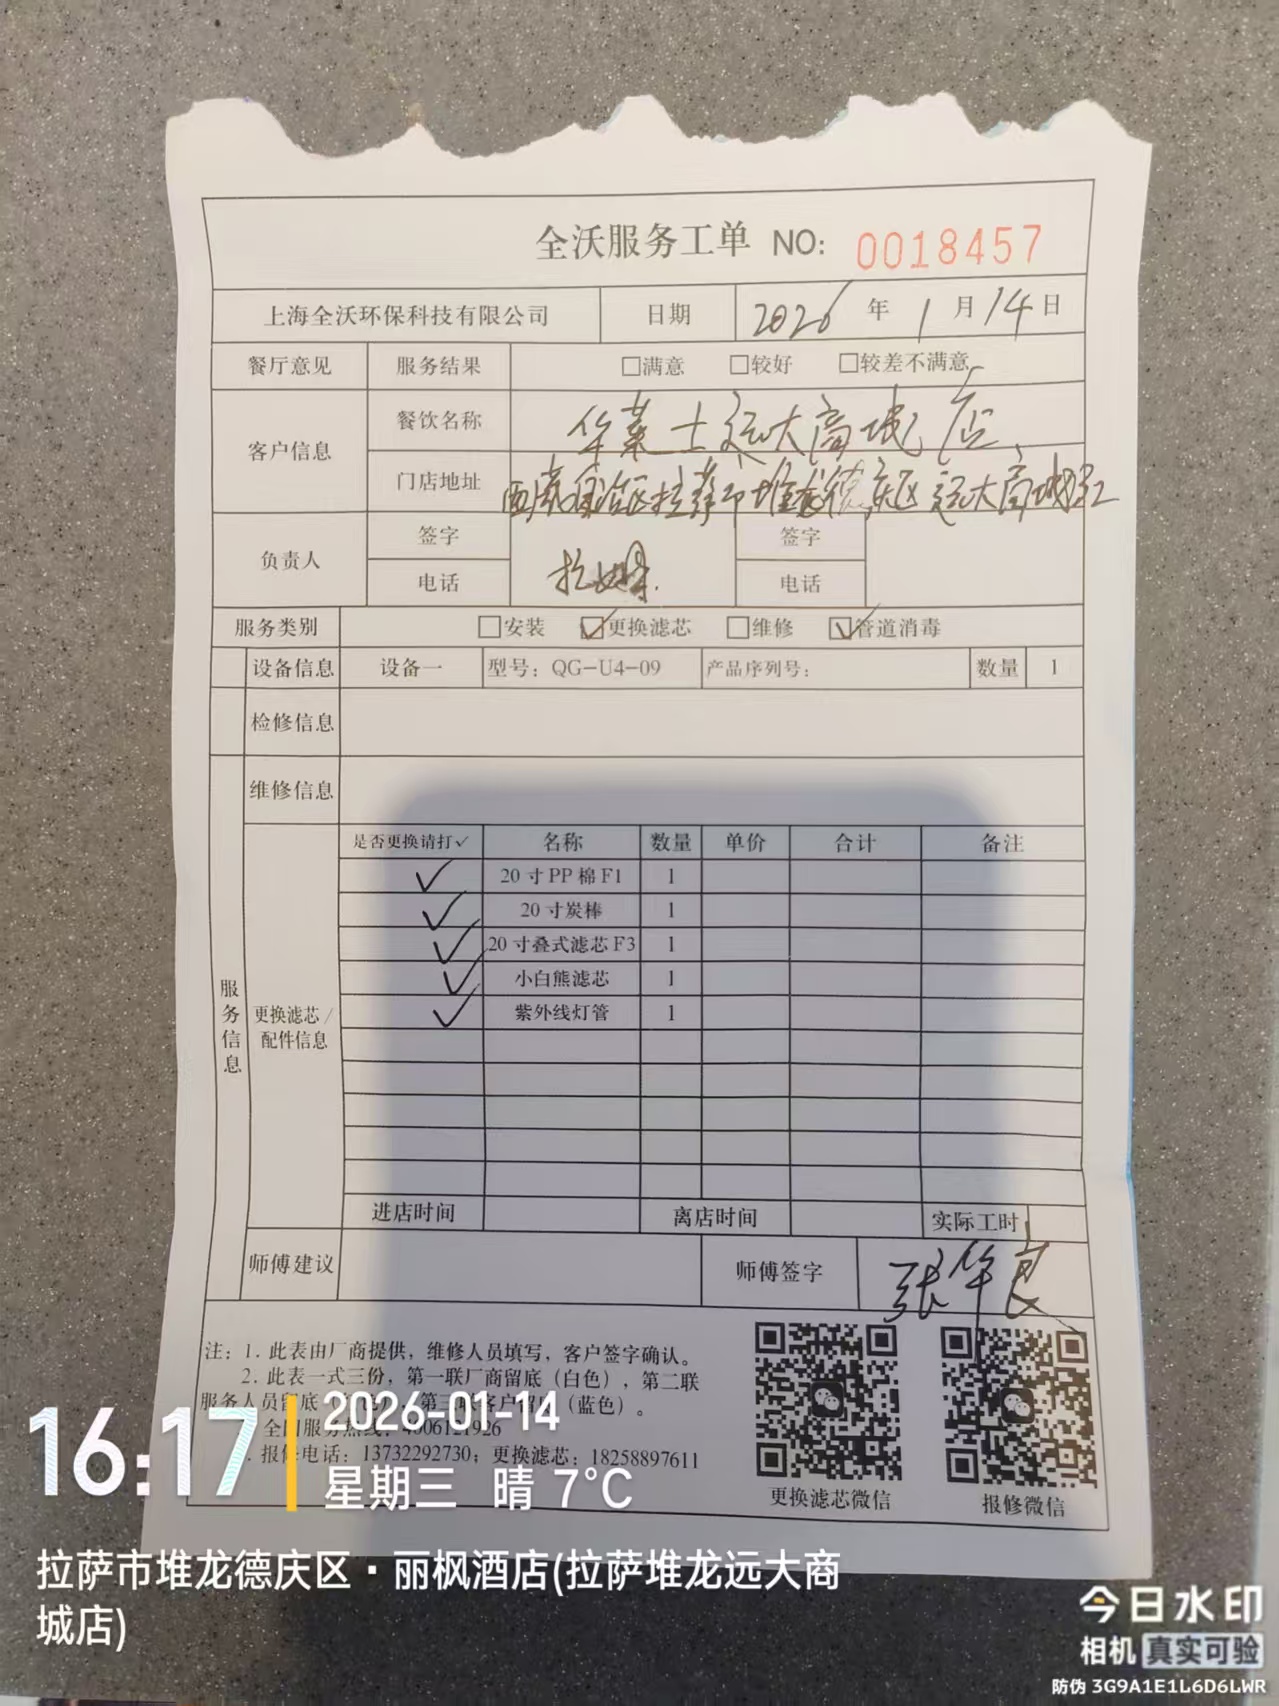 全沃服务工单 NO: 0018457
上海全沃环保科技有限公司 日期 2026年1月14日
餐厅意见 服务结果 □满意 □较好 □较差不满意
客户信息 餐饮名称 华莱士远大商城店
门店地址 西藏自治区拉萨市堆龙德庆区远大商城
负责人 签字 签字
电话 拉姆 电话
服务类别 □安装 ☑更换滤芯 □维修 ☑管道消毒
设备信息 设备一 型号：QG-U4-09 产品序列号： 数量 1
检修信息
维修信息
服务信息
更换滤芯/配件信息
是否更换请打✓ 名称 数量 单价 合计 备注
✓ 20寸PP棉F1 1
✓ 20寸炭棒 1
✓ 20寸叠式滤芯F3 1
✓ 小白熊滤芯 1
✓ 紫外线灯管 1
进店时间 离店时间 实际工时
师傅建议 师傅签字 张华良
注：1. 此表由厂商提供，维修人员填写，客户签字确认。
2. 此表一式三份，第一联厂商留底（白色），第二联
服务人员留底，第三联客户留底（蓝色）。
全国服务热线：4006121926
报修电话：13732292730；更换滤芯：18258897611
更换滤芯微信 报修微信
16:17 2026-01-14
星期三 晴 7°C
拉萨市堆龙德庆区·丽枫酒店(拉萨堆龙远大商
城店)
今日水印
相机 真实可验
防伪 3G9A1E1L6D6LWR